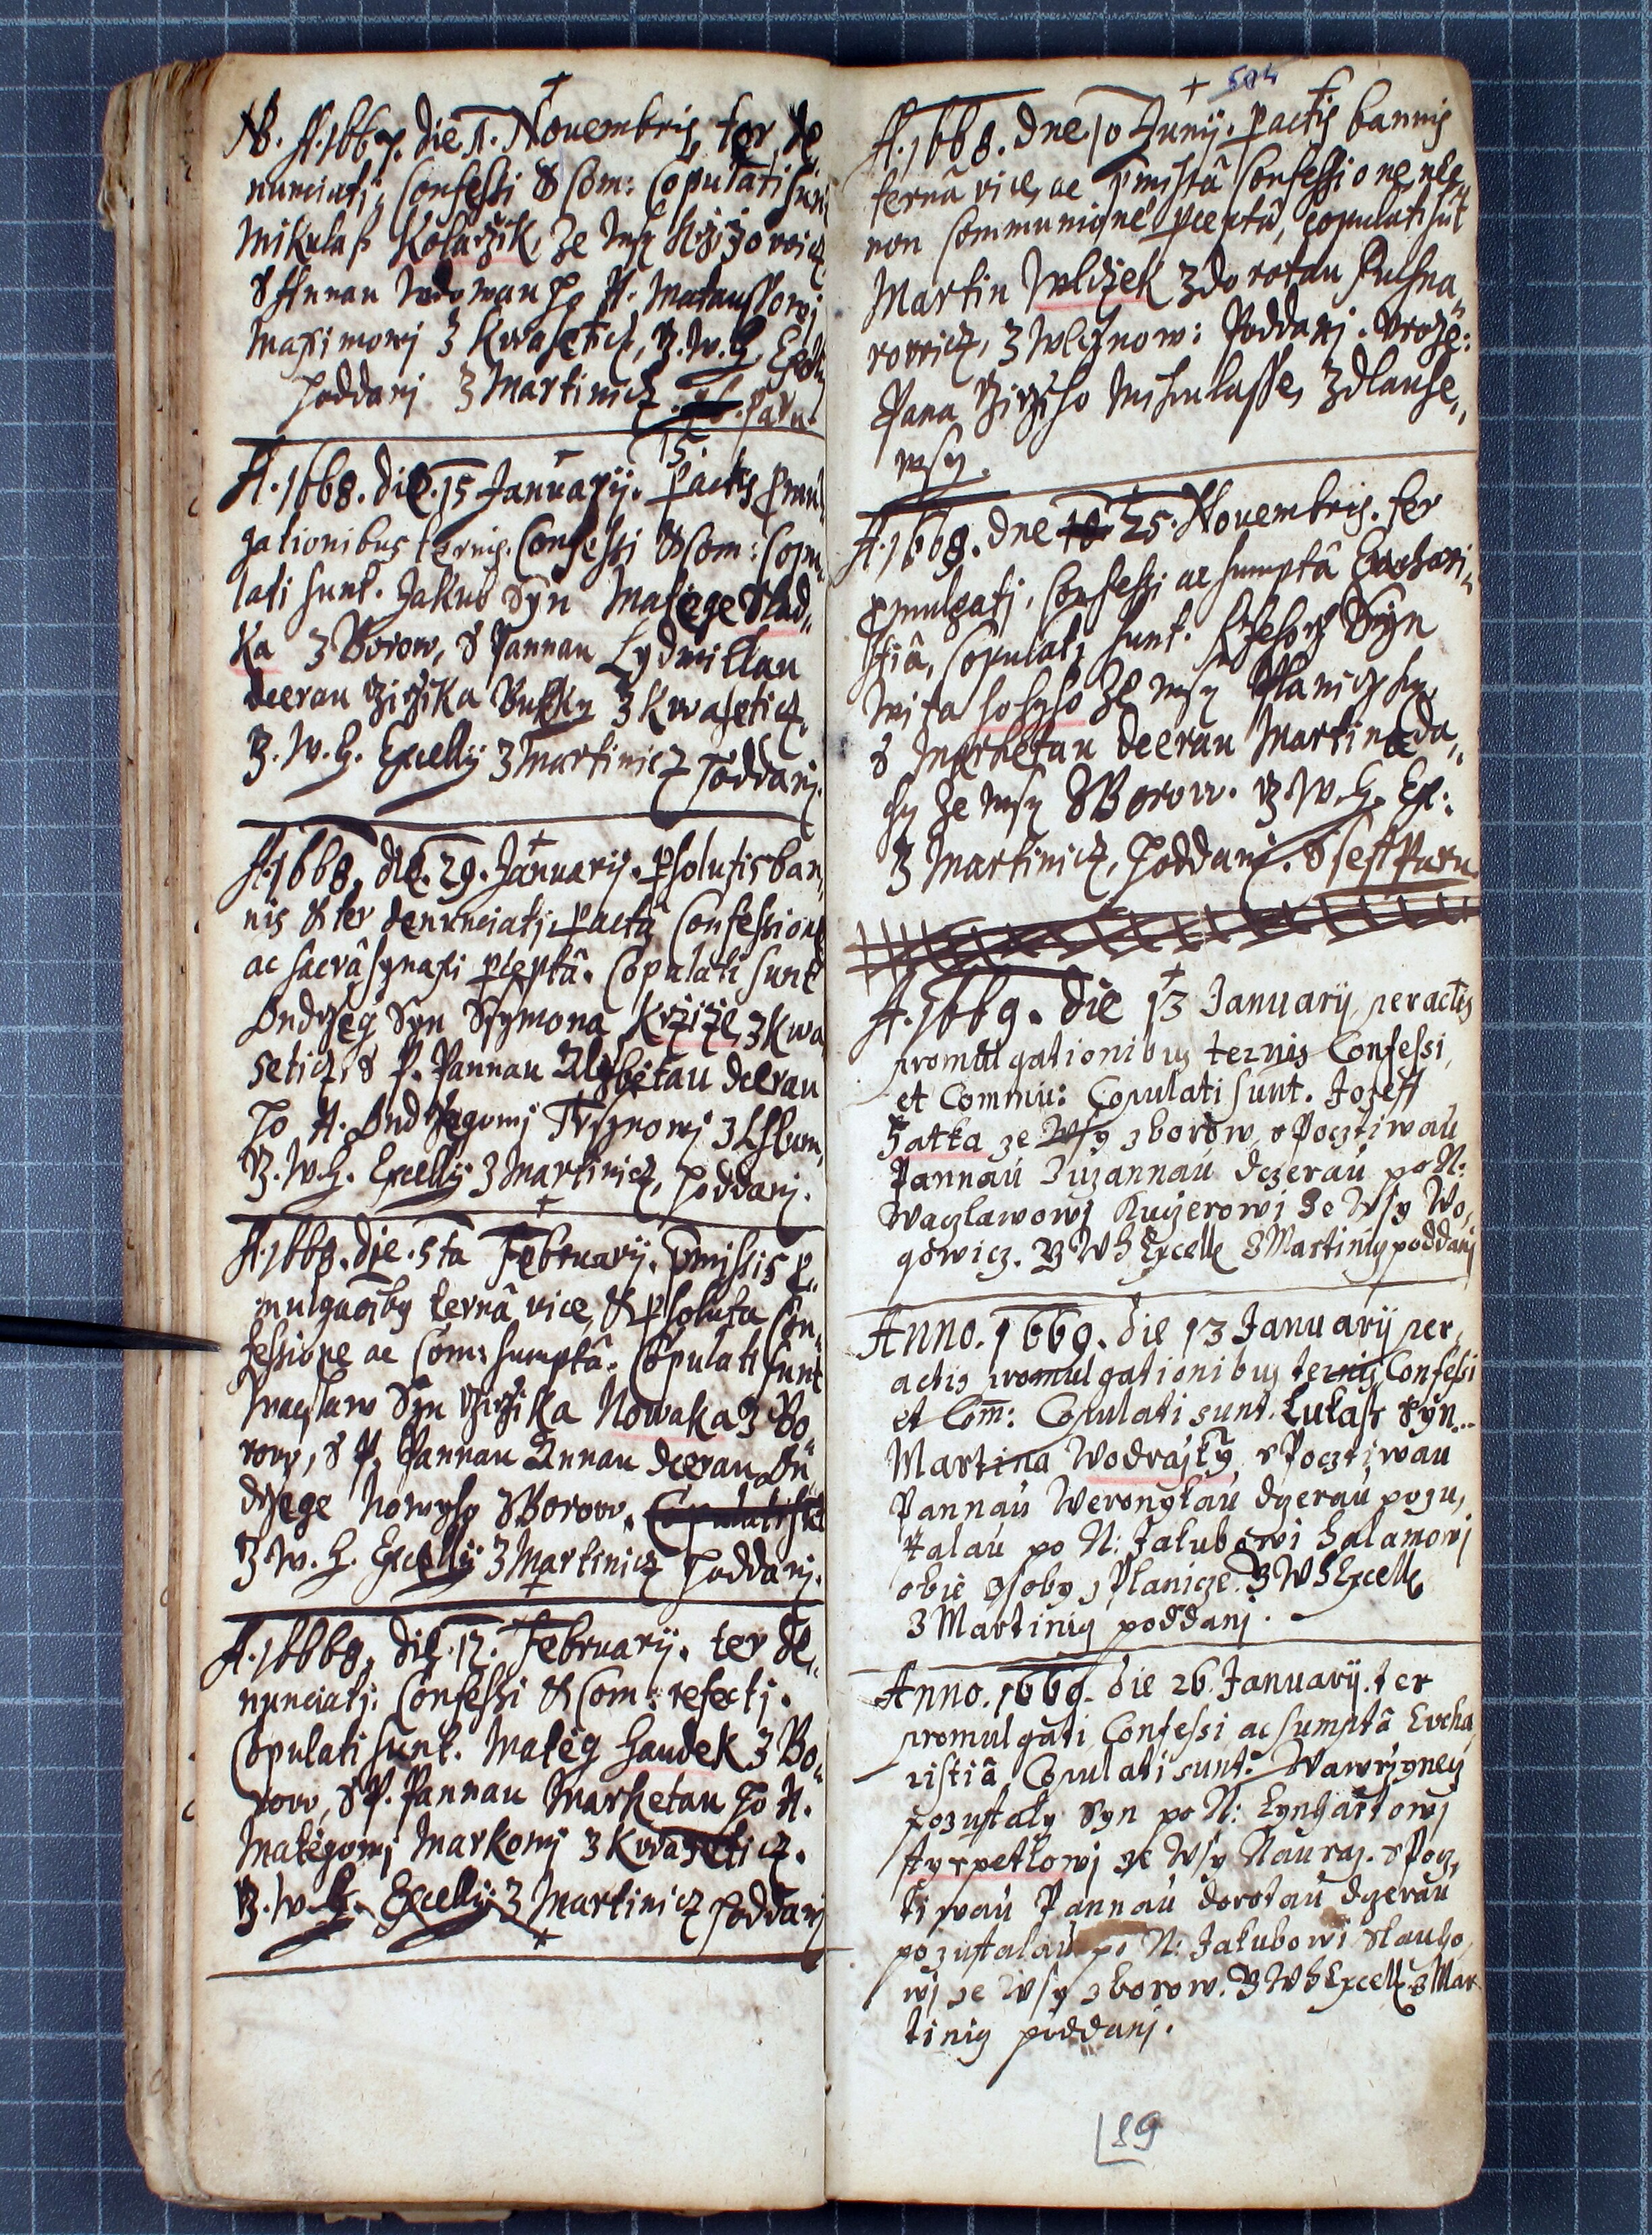 NB. A. 1667. die 1. Nouembris, ter de
nunciati, Confessi & Com: Copulati sunt
Mikulass Kolarzik, ze Wsy Krzizowicz
s Annau Wdowau po N. Mataussowj
Maximowj z Kwaseticz, J. W. H. Excell
poddanj z Martinicz. paru
15.
A. 1668. die. 15 Januarij. pactis pmul
gationibus ternis. Confessi & Com: Copu
lati sunt. Jakub Syn Matiege Slad„
ka z Borow, s Pannau Lydmillau
dcerau Girzika Bucky z Kwaseticz.
J. W. H. Excellij z Martinicz poddanj.
A. 1668. die. 29. Januarij. psolutis ban„
nis & ter denunciatj, pactâ Confessione
ac sacrâ synaxi pceptâ. Copulati sunt
Ondrzeg Syn Ssymona Krzize, z Kwa
seticz, s P. Pannau Alzbietau dcerau
po N. Ondrzegowj
J. W. H. Excellij z Martinicz, poddanj.
A. 1668. die. 5ta Februarij. pmissis p„
mulgaoibus ternâ vice, & psoluta Con„
fessione ac Com: sumptâ. Copulati sunt
Waczlaw Syn Girzika Nowaka z Bo„
row, s P. Pannau Annau dcerau On
drzege Nowyho z Borow.
J. W. H. Excellij z Martinicz poddanj.
A. 1668. die. 12. Februarij. ter de„
nunciatj. Confessi & Com: refectj.
Copulati sunt. Matieg Haudek z Bo„
row, s P. Pannau Marketau po N.
Matiegowj Markowj z Kwaseticz.
J. W. H. Excellij z Martinicz poddanj
504
A. 1668. dne 10 Junij. pactis bannis
ternâ vice, ac pmistâ Confessione, nec
non Communione pceptâ, copulati sut
Martin Wlczek z dorotau Puchna„
rowicz, z Wlcznow: Poddanj. Vroze:
Pana Girziho Mikulasse, z dlauhe„
wsy.
A. 1668. dne 25. Nouembris. ter
pmulgatj, Confessi ac sumptâ Euchari„
stiâ, Copulatj sunt. Rzehorz Syn
Wita ze wsy Planiczky
s Marketau dcerau Martina
ze wsy z Borow. J. W. H. Ex:
z Martinicz, poddanj. ssest Paru.
A. 1669. die 13 Januarij, peractis
promulgationibus ternis Confessi
et Commu: Copulati sunt. Jozeff
Satka ze Wsy z borow s Pocztiwau
Pannau Zuzannau dczerau po N:
Waczlawowj Kuczerowi ze Wsy Wo„
gowicz. J W H Excelle z Martinicz poddanj
Anno. 1669. die 13 Januarij per„
actis promulgationibus ternis Confessi
et Com: Copulati sunt. Lukass syn
Martina Wodrażky s Pocztiwau
Pannau Weronykau dczerau pozu„
stalau po N: Jakubowi Halamowj
obie osoby z Planicze. J W H Excelle
z Martinicz poddanj.
Anno. 1669. die 26. Januarij. ter
promulgati Confessi ac sumptâ Eucha
ristiâ Copulati sunt. Wawrzyneg
pozustaly syn po N: Lynhartowj
ze Wsy Nauraz. s Pocz„
tiwau Pannau dorotau dczerau
pozustalau po N: Jakubowi Slauho„
wj ze Wsy z borow. J W H Excelle z Mar
tinicz poddanj.
89